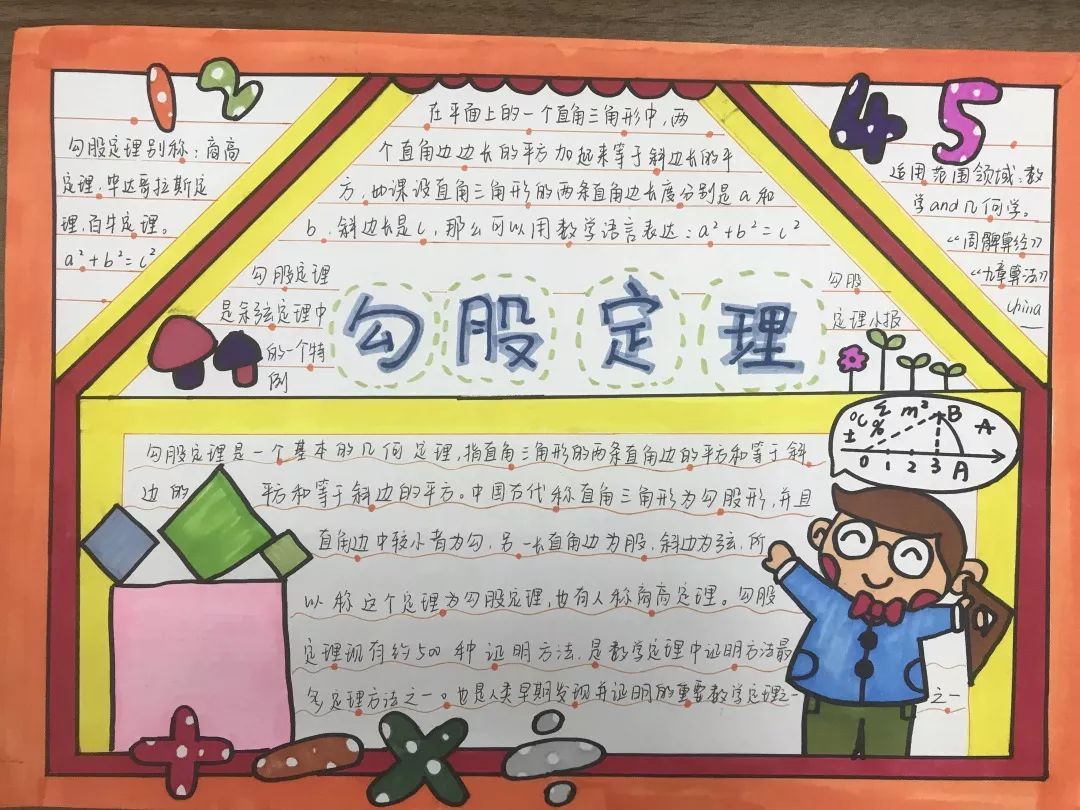 1 2
勾股定理别称:商高
定理,毕达哥拉斯定
理,百牛定理。
a²+b²=c²
在平面上的一个直角三角形中,两
个直角边边长的平方加起来等于斜边长的平
方,如课设直角三角形的两条直角边长度分别是a和
b,斜边长是c,那么可以用数学语言表达:a²+b²=c²
4 5
适用范围领域:数
学and几何学。
《周髀算经》
《九章算法》
china
勾股定理
是余弦定理中
的一个特
例
勾股定理
勾股
定理小报
℃ Σ m² B A
± %
0 1 2 3 A
勾股定理是一个基本的几何定理,指直角三角形的两条直角边的平方和等于斜
边的 平方和等于斜边的平方。中国古代称直角三角形为勾股形,并且
直角边中较小者为勾,另一长直角边为股,斜边为弦,所
以称这个定理为勾股定理,也有人称商高定理。勾股
定理现有约500种证明方法,是数学定理中证明方法最
多定理方法之一。也是人类早期发现并证明的重要数学定理之一 之一
+ - × ÷